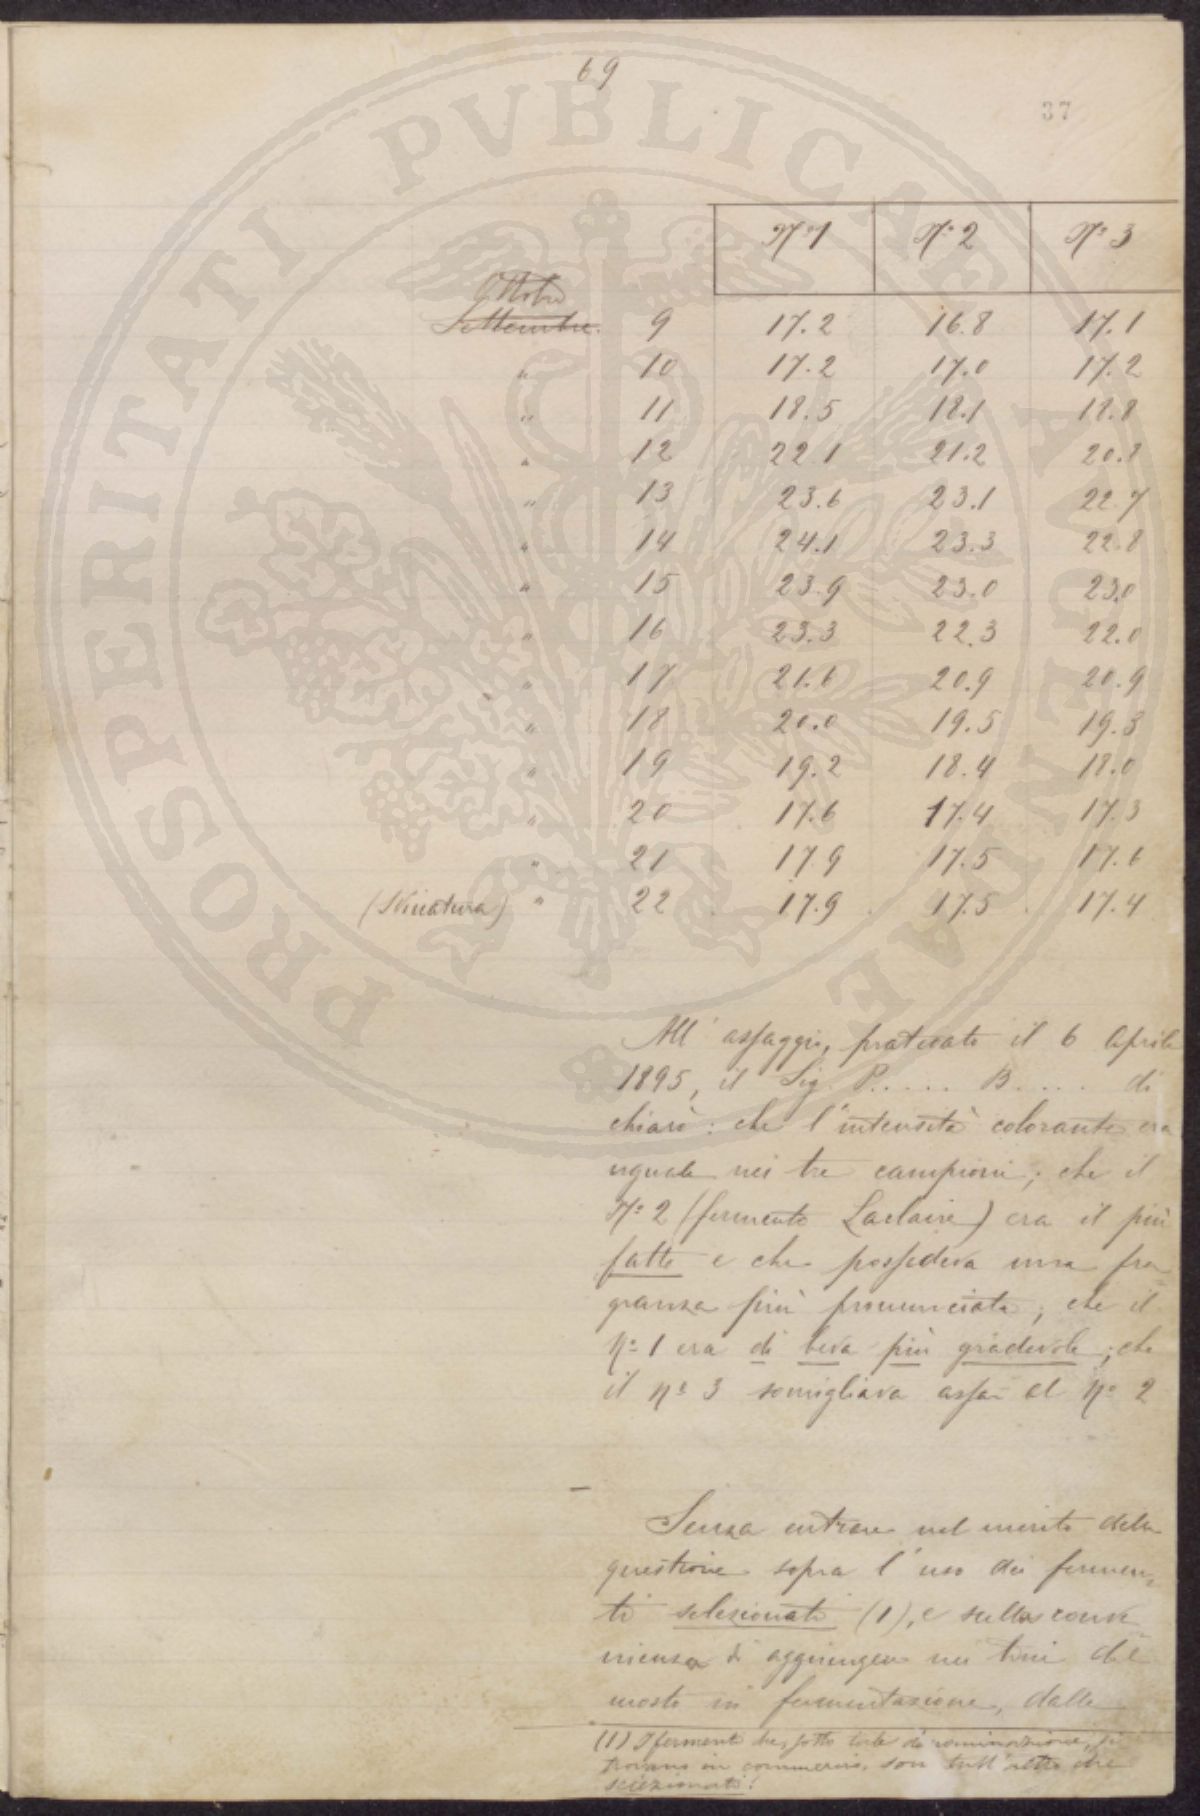 69
37
Nº 1 Nº 2 Nº 3
Ottobre
Settembre. 9 17.2 16.8 17.1
" 10 17.2 17.0 17.2
" 11 18.5 18.1 18.8
" 12 22.1 21.2 20.8
" 13 23.6 23.1 22.7
" 14 24.1 23.3 22.8
" 15 23.9 23.0 23.0
" 16 23.3 22.3 22.0
" 17 21.6 20.9 20.9
" 18 20.0 19.5 19.3
" 19 19.2 18.4 18.0
" 20 17.6 17.4 17.3
" 21 17.9 17.5 17.6
(Svinatura) " 22 17.9 17.5 17.4
All' assaggio, praticato il 6 Aprile
1895, il Sig. P..... B.... di
chiarò: che l'intensità colorante era
uguale nei tre campioni; che il
Nº 2 (fermento Laclaire) era il più
fatto e che possedeva una fra
granza più pronunciata; che il
Nº 1 era di beva più gradevole; che
il nº 3 somigliava assai al Nº 2
Senza entrare nel merito della
questione sopra l'uso dei fermen
ti selezionati (1), e sulla conve
nienza di aggiungere nei tini del
mosto in fermentazione, dalle
(1) I fermenti che, sotto tale denominazione, si
trovano in commercio, son tutt'altro che
selezionati!
PROSPERITATI PVBLICAE AVGENDAE